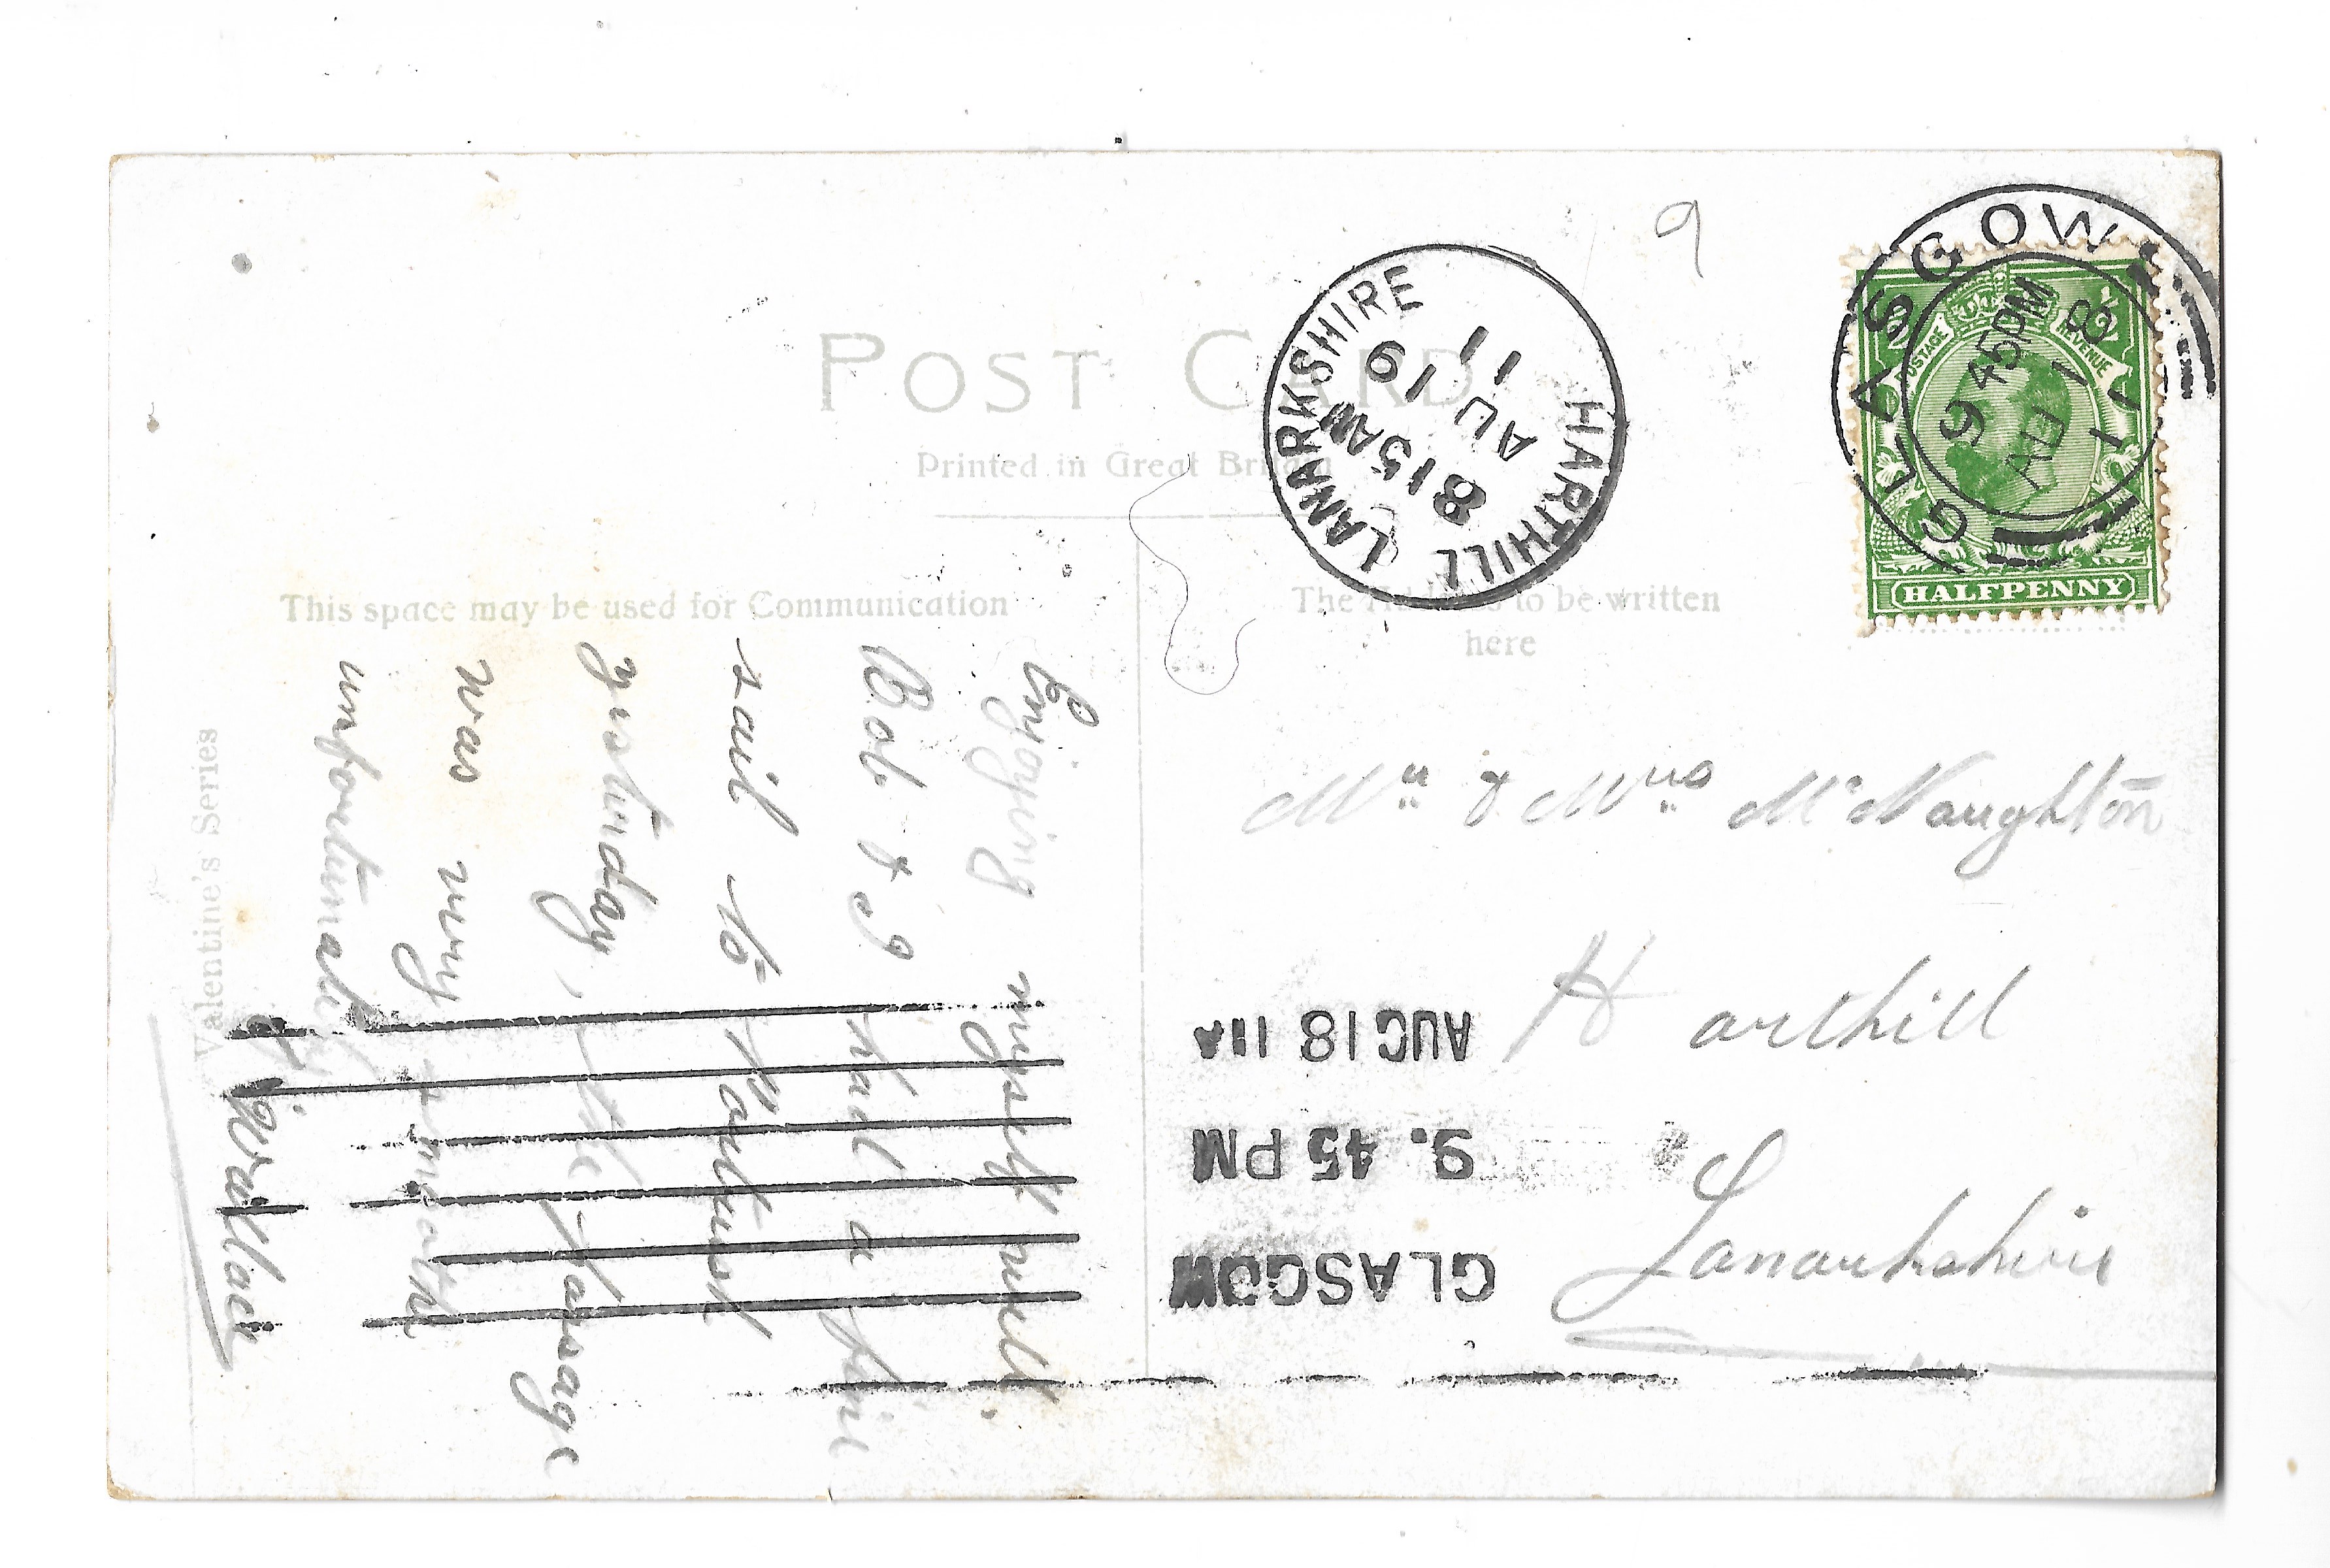 POST CARD
Printed in Great Britain
This space may be used for Communication
The Address to be written
here
Valentine's Series
Enjoying myself well.
Bob & I had a fine
sail to Portrush
yesterday, the Passage
was very smooth
unfortunately
J. Wallace
Mr & Mrs McNaughton
Harthill
Lanarkshire
9
HARTHILL LANARKSHIRE
8 15AM
AU 19
11
GLASGOW
9 45PM
AU 18
11
POSTAGE REVENUE
1/2
HALFPENNY
GLASGOW
9.45 PM
AUG 18 11A